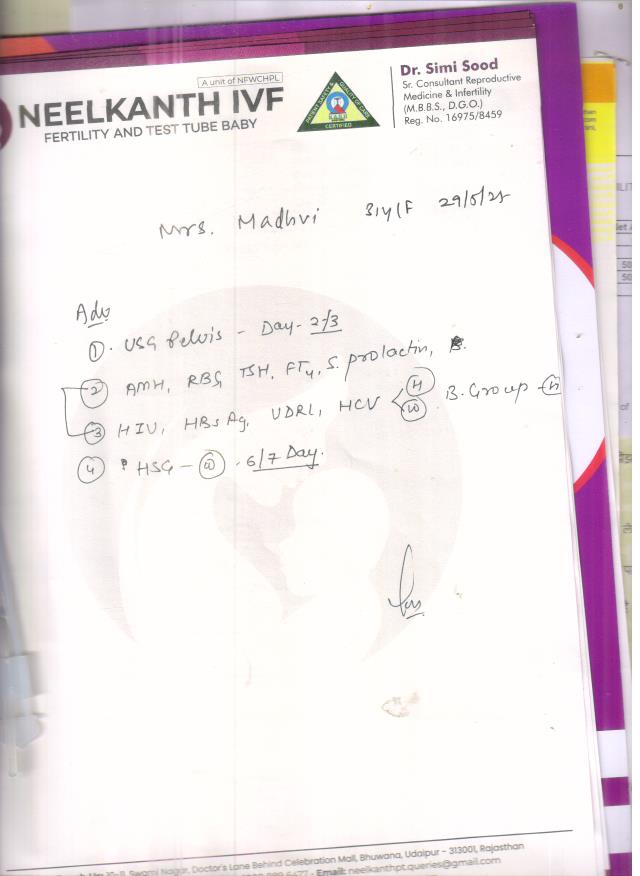 A unit of NFWCHPL
NEELKANTH IVF
FERTILITY AND TEST TUBE BABY
CERTIFIED
Dr. Simi Sood
Sr. Consultant Reproductive
Medicine & Infertility
(M.B.B.S., D.G.O.)
Reg. No. 16975/8459
Mrs. Madhvi 31y/F 29/5/25
Adv
① USG Pelvis - Day- 2/3
② AMH, RBS, TSH, FT4, S. prolactin,
③ HIV, HBsAg, VDRL, HCV < Ⓗ Ⓦ B. Group - Ⓗ
④ HSG - Ⓦ - 6/7 Day.
Swami Nagar, Doctor's Lane Behind Celebration Mall, Bhuwana, Udaipur - 313001, Rajasthan
Email: neelkanthpt.queries@gmail.com